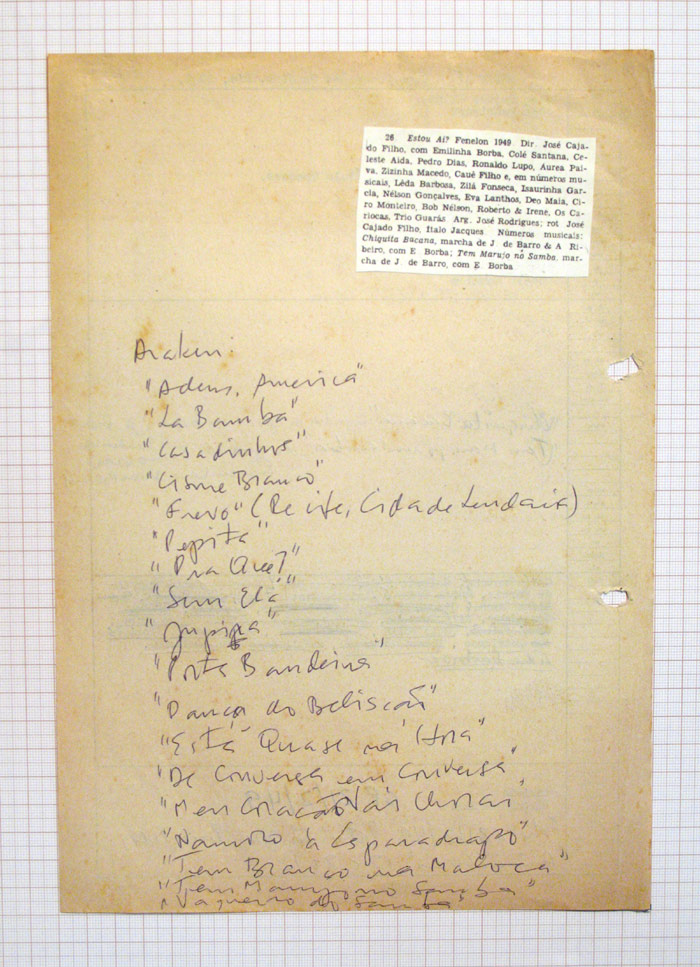 26 Estou Aí? Fenelon 1949 Dir. José Caja-
do Filho, com Emilinha Borba, Colé Santana, Ce-
leste Aida, Pedro Dias, Ronaldo Lupo, Aurea Pai-
va, Zizinha Macedo, Cauê Filho e, em números mu-
sicais, Lêda Barbosa, Zilá Fonseca, Isaurinha Gar-
cia, Nélson Gonçalves, Eva Lanthos, Deo Maia, Ci-
ro Monteiro, Bob Nélson, Roberto & Irene, Os Ca-
riocas, Trio Guarás Arg. José Rodrigues; rot José
Cajado Filho, Italo Jacques Números musicais:
Chiquita Bacana, marcha de J de Barro & A Ri-
beiro, com E Borba; Tem Marujo nô Samba, mar-
cha de J de Barro, com E Borba
Araken:
"Adeus, America"
"La Bamba"
"Casadinhos"
"Cisne Branco"
"Frevo" (Recife, Cidade Lendaria)
"Pepita"
"Pra Que?"
"Sem Ela"
"Porta Bandeira"
"Dança do Beliscão"
"Está Quase na Hora"
"De Conversa em Conversa"
"Meu Coração Vai Chorar"
"Namoro à Esparadrapo"
"Tem Branco na Maloca"
"Tem Marujo no Samba"
"Vaqueiro do Samba"